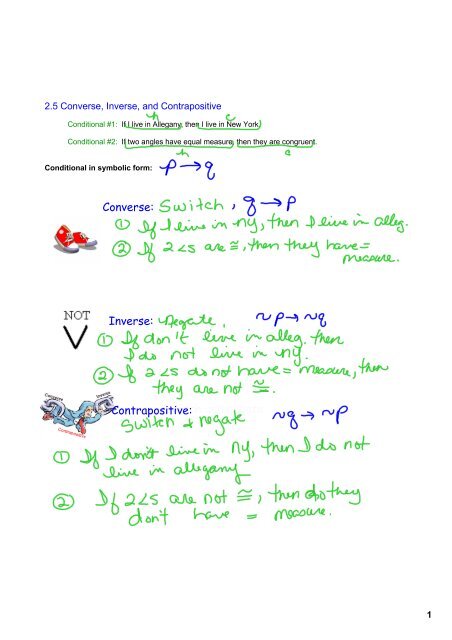 2.5 Converse, Inverse, and Contrapositive
h c
Conditional #1: If I live in Allegany, then I live in New York.
Conditional #2: If two angles have equal measure, then they are congruent.
h c
Conditional in symbolic form: p → q
Converse: Switch, q → p
① If I live in ny, then I live in alleg.
② If 2 <s are ≅, then they have =
measure.
NOT
Inverse: Negate, ~p → ~q
① If don't live in alleg. then
I do not live in ny.
② If 2 <s do not have = measure, then
they are not ≅.
Converse Inverse
Contrapositive
Contrapositive: ~q → ~p
Switch & negate
① If I don't live in ny, then I do not
live in allegany
② If 2 <s are not ≅, then they
don't have = measure.
1